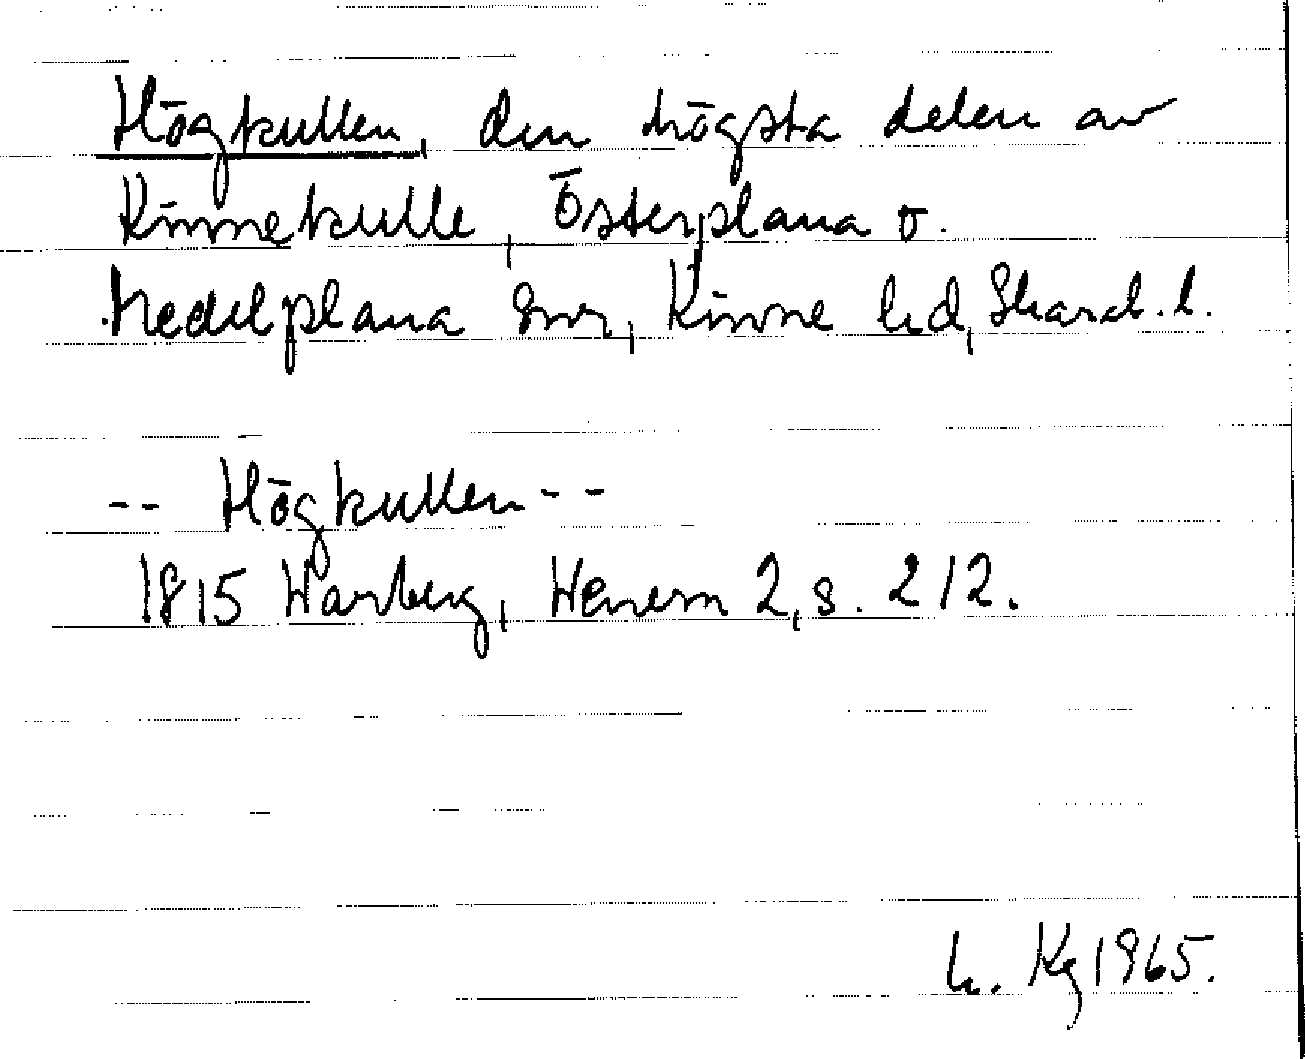 Högkullen, den högsta delen av
Kinnekulle, Österplana o.
Medelplana snr, Kinne hd, Skarab. l.
-- Högkullen --
1815 Warberg, Wenern 2, s. 212.
h. Kg 1965.